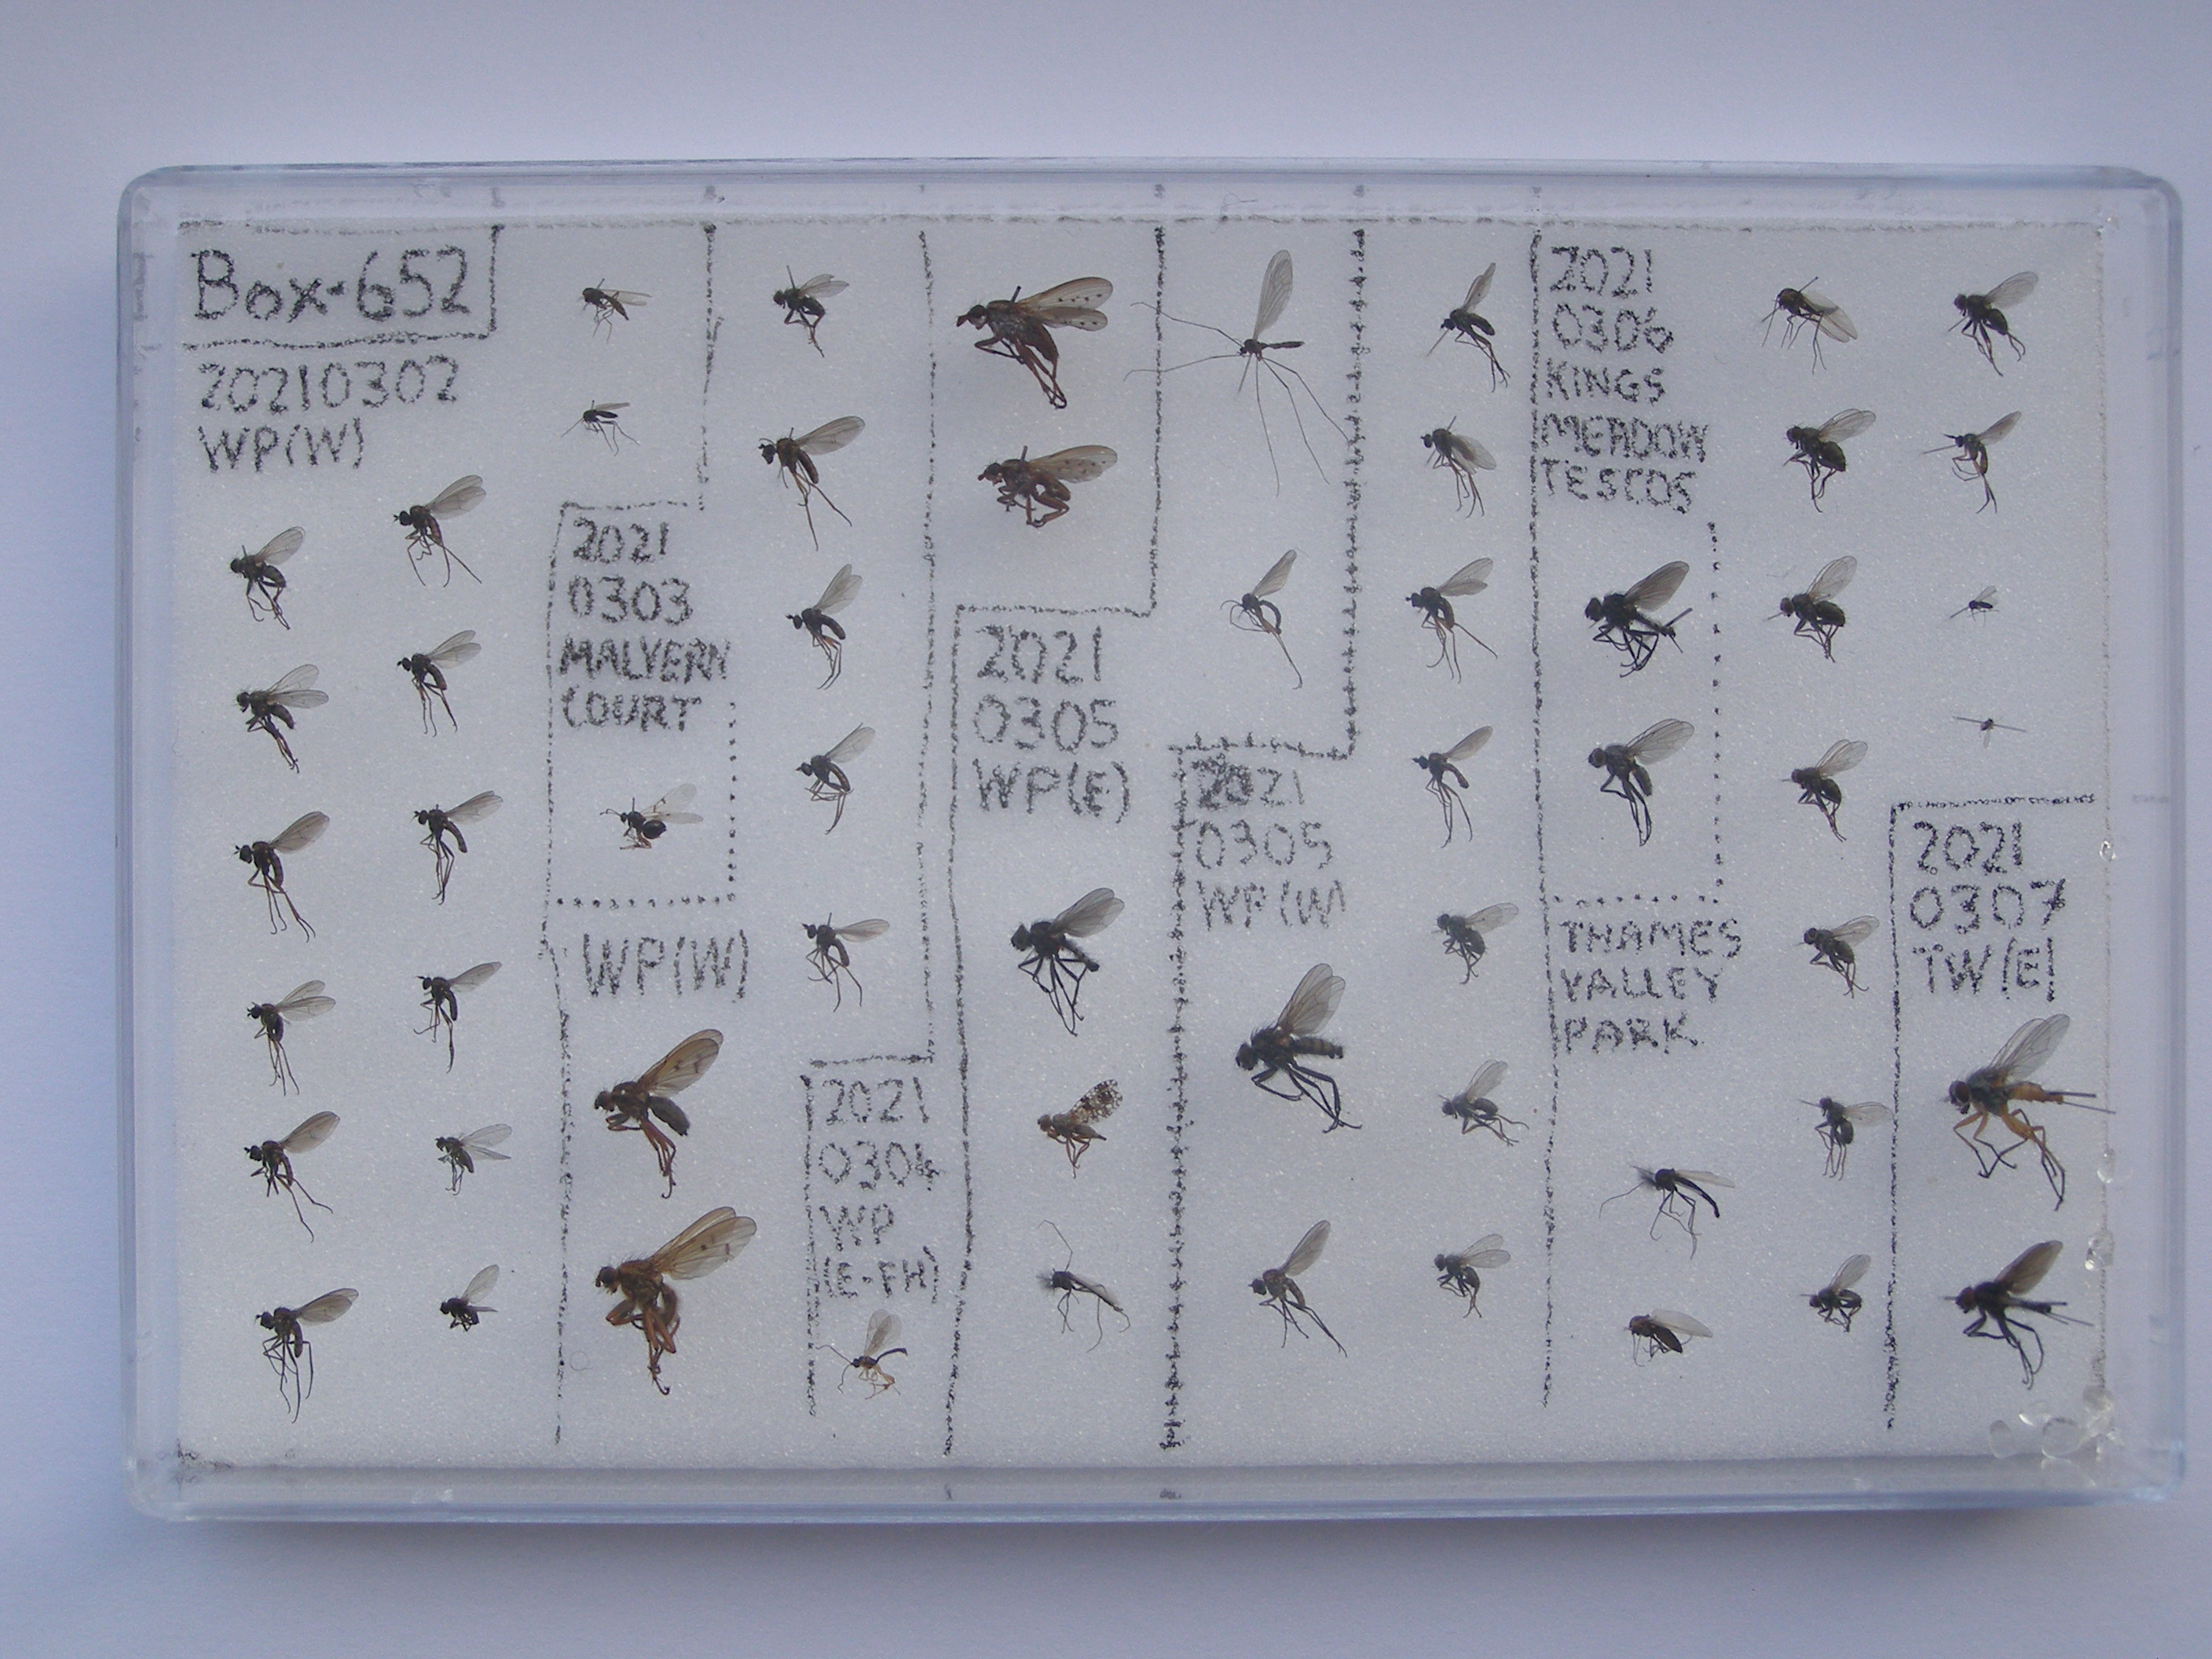 Box-652
20210302
WP(W)
2021
0303
MALVERN
COURT
WP(W)
2021
0304
2021
0305
WP(E)
2021
0305
WP(W)
2021
0306
KINGS
MEADOW
TESCOS
THAMES
VALLEY
PARK
2021
0307
TW(E)